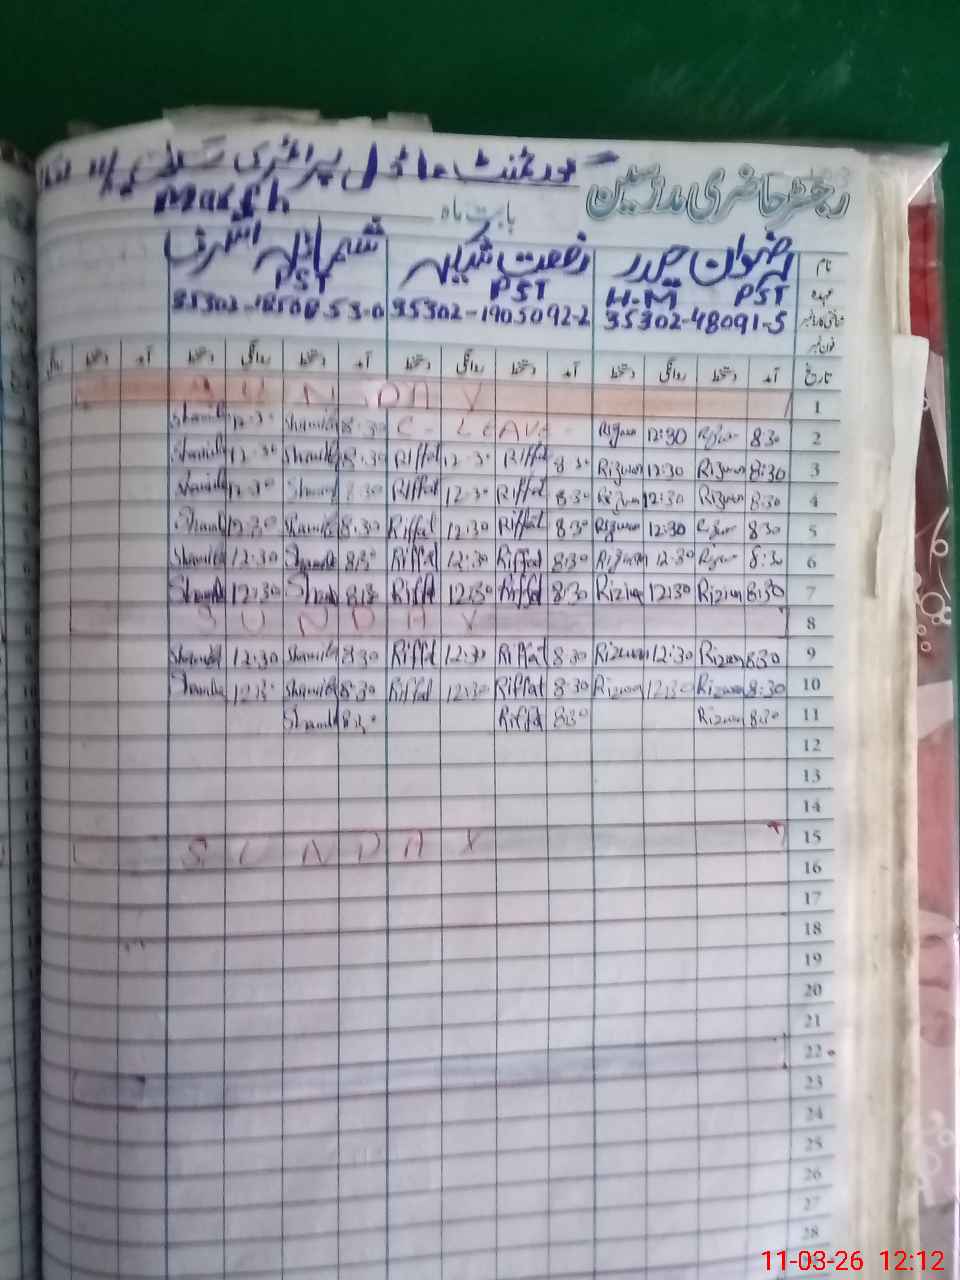 رجسٹر حاضری مدرسین
گورنمنٹ ماڈل پرائمری سکول
بابت ماہ March
نام رضوان حیدر رفعت شکیلہ شمائلہ اشرف
عہدہ PST H.M PST PST
شناختی کارڈ نمبر 35302-48091-5 35302-1905092-2
فون نمبر
تاریخ آمد دستخط روانگی دستخط آمد دستخط روانگی دستخط آمد دستخط روانگی دستخط آمد دستخط روانگی
1 SUNDAY
2 8:30 Rizwan 12:30 Rizwan C-LEAVE 8:30 Shamila 12:30 Shamila
3 8:30 Rizwan 12:30 Rizwan 8:30 Riffat 12:30 Riffat 8:30 Shamila 12:30 Shamila
4 8:30 Rizwan 12:30 Rizwan 8:30 Riffat 12:30 Riffat 8:30 Shamila 12:30 Shamila
5 8:30 Rizwan 12:30 Rizwan 8:30 Riffat 12:30 Riffat 8:30 Shamila 12:30 Shamila
6 8:30 Rizwan 12:30 Rizwan 8:30 Riffat 12:30 Riffat 8:30 Shamila 12:30 Shamila
7 8:30 Rizwan 12:30 Rizwan 8:30 Riffat 12:30 Riffat 8:30 Shamila 12:30 Shamila
8 SUNDAY
9 8:30 Rizwan 12:30 Rizwan 8:30 Riffat 12:30 Riffat 8:30 Shamila 12:30 Shamila
10 8:30 Rizwan 12:30 Rizwan 8:30 Riffat 12:30 Riffat 8:30 Shamila 12:30 Shamila
11 8:30 Rizwan 8:30 Riffat 8:30 Shamila
12
13
14
15 SUNDAY
16
17
18
19
20
21
22
23
24
25
26
27
28
11-03-26 12:12